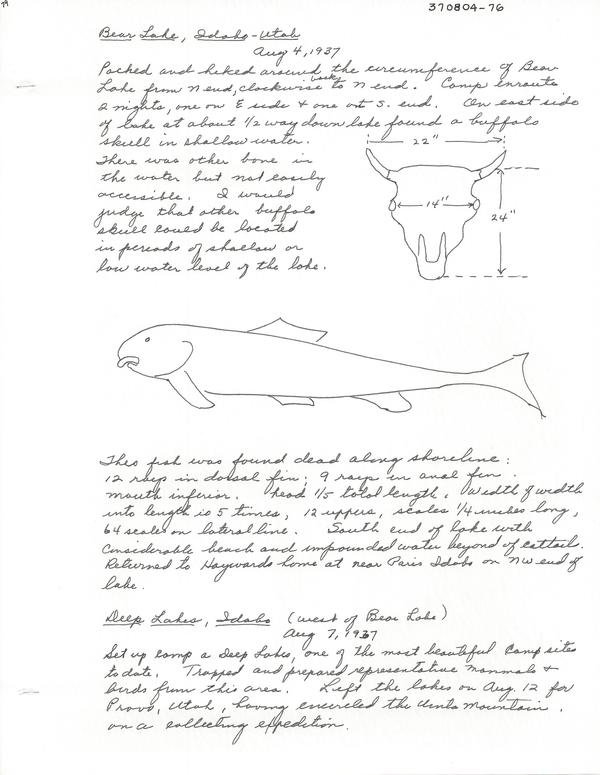 370804-76
Bear Lake, Idaho-Utah
Aug 4, 1937
Packed and hiked around the circumference of Bear
Lake from N end, clockwise back to N end. Camp enroute
2 nights, one on E side & one on S. end. On east side
of lake at about 1/2 way down lake found a buffalo
skull in shallow water.
There was other bone in
the water but not easily
accessible. I would
judge that other buffalo
skull could be located
in periods of shallow or
low water level of the lake.
22"
14"
24"
This fish was found dead along shoreline:
12 rays in dorsal fin; 9 rays in anal fin.
mouth inferior. head 1/5 total length. Width of width
into length is 5 times, 12 uppers, scales 1/4 inches long,
64 scales on lateral line. South end of lake with
considerable beach and impounded water beyond of cattails.
Returned to Haywards home at near Paris Idaho on NW end of
lake.
Deep Lakes, Idaho (west of Bear Lake)
Aug 7, 1937
Set up camp a Deep Lakes, one of the most beautiful camp sites
to date. Trapped and prepared representative mammals &
birds from this area. Left the lakes on Aug. 12 for
Provo, Utah, having encircled the Uinta Mountain.
on a collecting expedition.